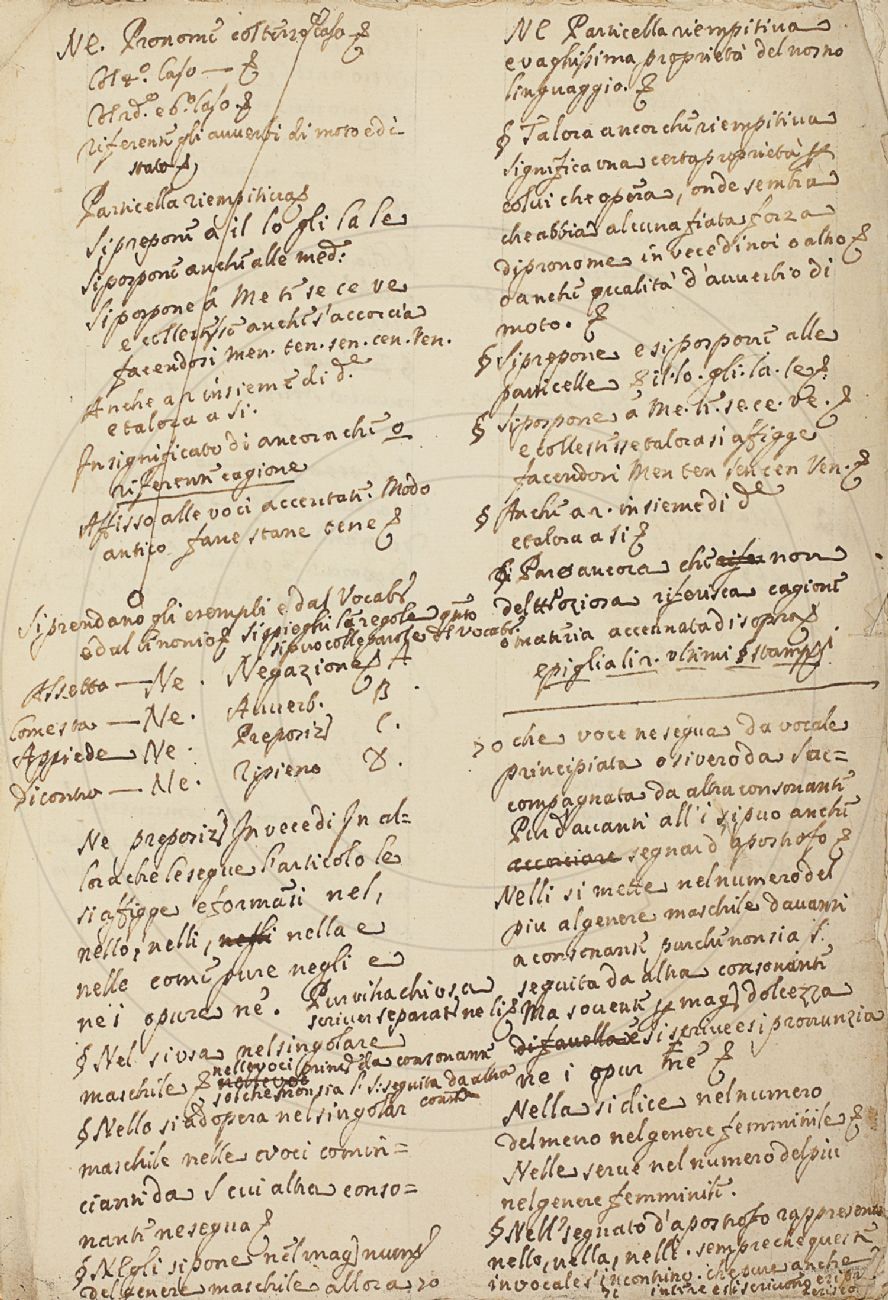 Ne. Pronome col terzo caso
Col 4.º Caso —
Col 2.º e 6.º Caso
riferente gli avverbi di moto e di
stato
Particella riempitiva
Si prepone à il lo gli la le
Si pospone anche alle med:
Si pospone à Me ti se ce ve
e collettisse anche s'accorcia
facendosi Men. ten. sen. cen. Ven.
Anche a r insieme di d.e
e talora a si.
In significato di ancorache o
riferente cagione
Affisso alle voci accentate. Modo
antico fane stane tene
Si prendano gli esempli e dal Vocab
e dal Cinonio Si pieghi le regole quto
si può colle parole del vocab
Assetta — Ne. Negazione A
Comesta — Ne. Avverb. B.
Appiede Ne. Preposiz C.
Dicontro — Ne. Ripieno D.
Ne preposiz In vece di In al=
lora che le segue l'articolo le
si affigge e formasi nel,
nello, nelli, nella e
nelle come pure negli e
ne i opure ne'. Pur vi ha chi usa
scriver separati ne li
§ Nel si usa nel singolare
maschile nelle voci princ. da consonanti
sol che non sia S. seguita da altra
conson.
§ Nello si adopera nel singolar
maschile nelle voci comin=
cianti da S cui altra conso=
nante ne segua
§ Negli si pone nel mag num
del genere maschile allora 20
Ne Particella riempitiva
e vaghissima proprietà del nostro
linguaggio.
§ Talora ancorche riempitiva
significa una certa proprietà
colui che opera, onde sembra
che abbia alcuna fiata forza
di pronome in vece di noi o altro
d'anche qualità d'avverbio di
moto.
§ Si prepone e si pospone alle
particelle il. lo. gli. la. le
§ Si pospone a Me. ti. se. ce. ve.
e collettisse talora si affigge
facendosi Men ten sen cen Ven.
§ Anche a r. insieme di d.e
e talora a si
§ Par ancora che non
del tt.o oziosa riferisca cagione
o materia accennata di sopra
e piglia li r. ultimi § stampi.
20 che voce ne segua da vocale
principiata o sivero da S ac=
compagnata da altra consonante
Pur d'avanti all' i si può anche
accorciare segnar d'apostrofo
Nelli si mette nel numero del
più al genere maschile davanti
a consonante purche non sia S.
seguita da altra consonante
Ma sovente p mag dolcezza
di favella e si scrive e si pronunzia
ne i opur ne'
Nella si dice nel numero
del meno nel genere femminile
Nelle serve nel numero del più
nel genere femminile.
§ Nell' segnato d'apostrofo rappresenta
nello, nella, nelli. sempre che queste
in vocale s'incontrino. che pure anche